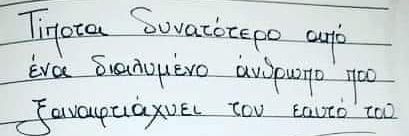 Τίποτα δυνατότερο από
ένα διαλυμένο άνθρωπο που
ξαναφτιάχνει τον εαυτό του